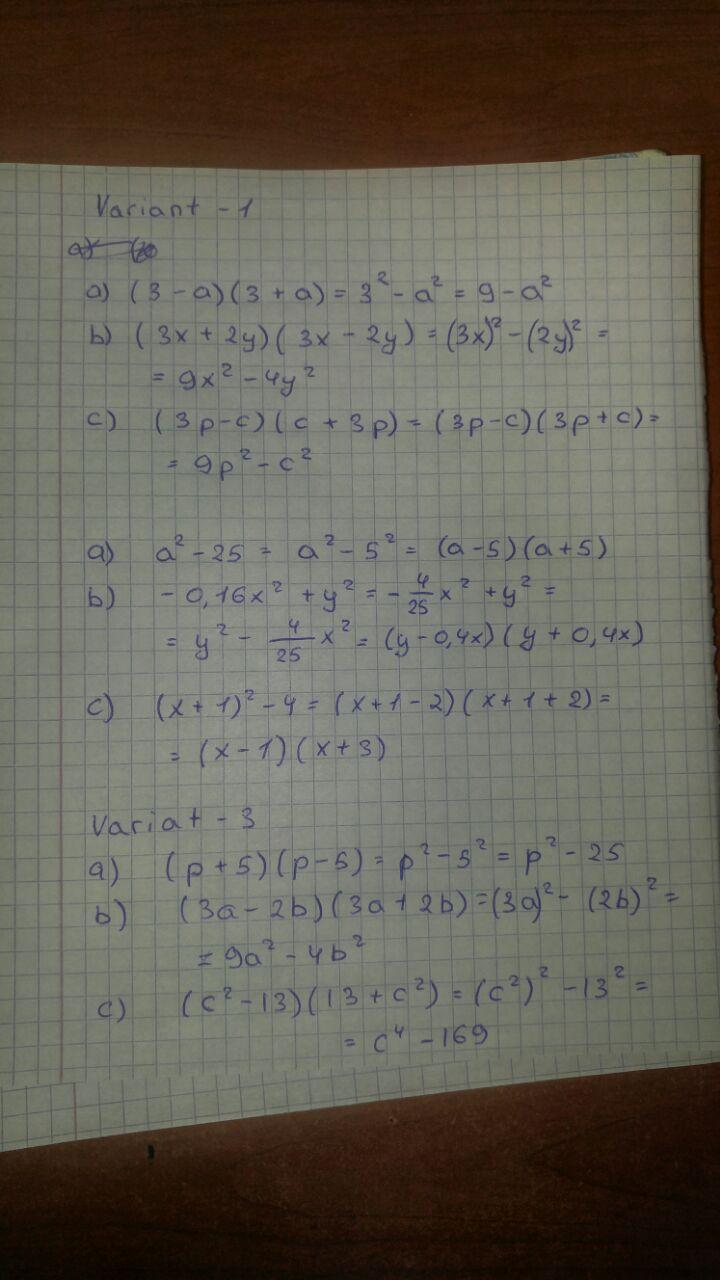 Variant - 1
a) (3 - a)(3 + a) = 3² - a² = 9 - a²
b) (3x + 2y)(3x - 2y) = (3x)² - (2y)² =
= 9x² - 4y²
c) (3p - c)(c + 3p) = (3p - c)(3p + c) =
= 9p² - c²
a) a² - 25 = a² - 5² = (a - 5)(a + 5)
b) - 0,16x² + y² = - 4/25 x² + y² =
= y² - 4/25 x² = (y - 0,4x)(y + 0,4x)
c) (x + 1)² - 4 = (x + 1 - 2)(x + 1 + 2) =
= (x - 1)(x + 3)
Variat - 3
a) (p + 5)(p - 5) = p² - 5² = p² - 25
b) (3a - 2b)(3a + 2b) = (3a)² - (2b)² =
= 9a² - 4b²
c) (c² - 13)(13 + c²) = (c²)² - 13² =
= c⁴ - 169